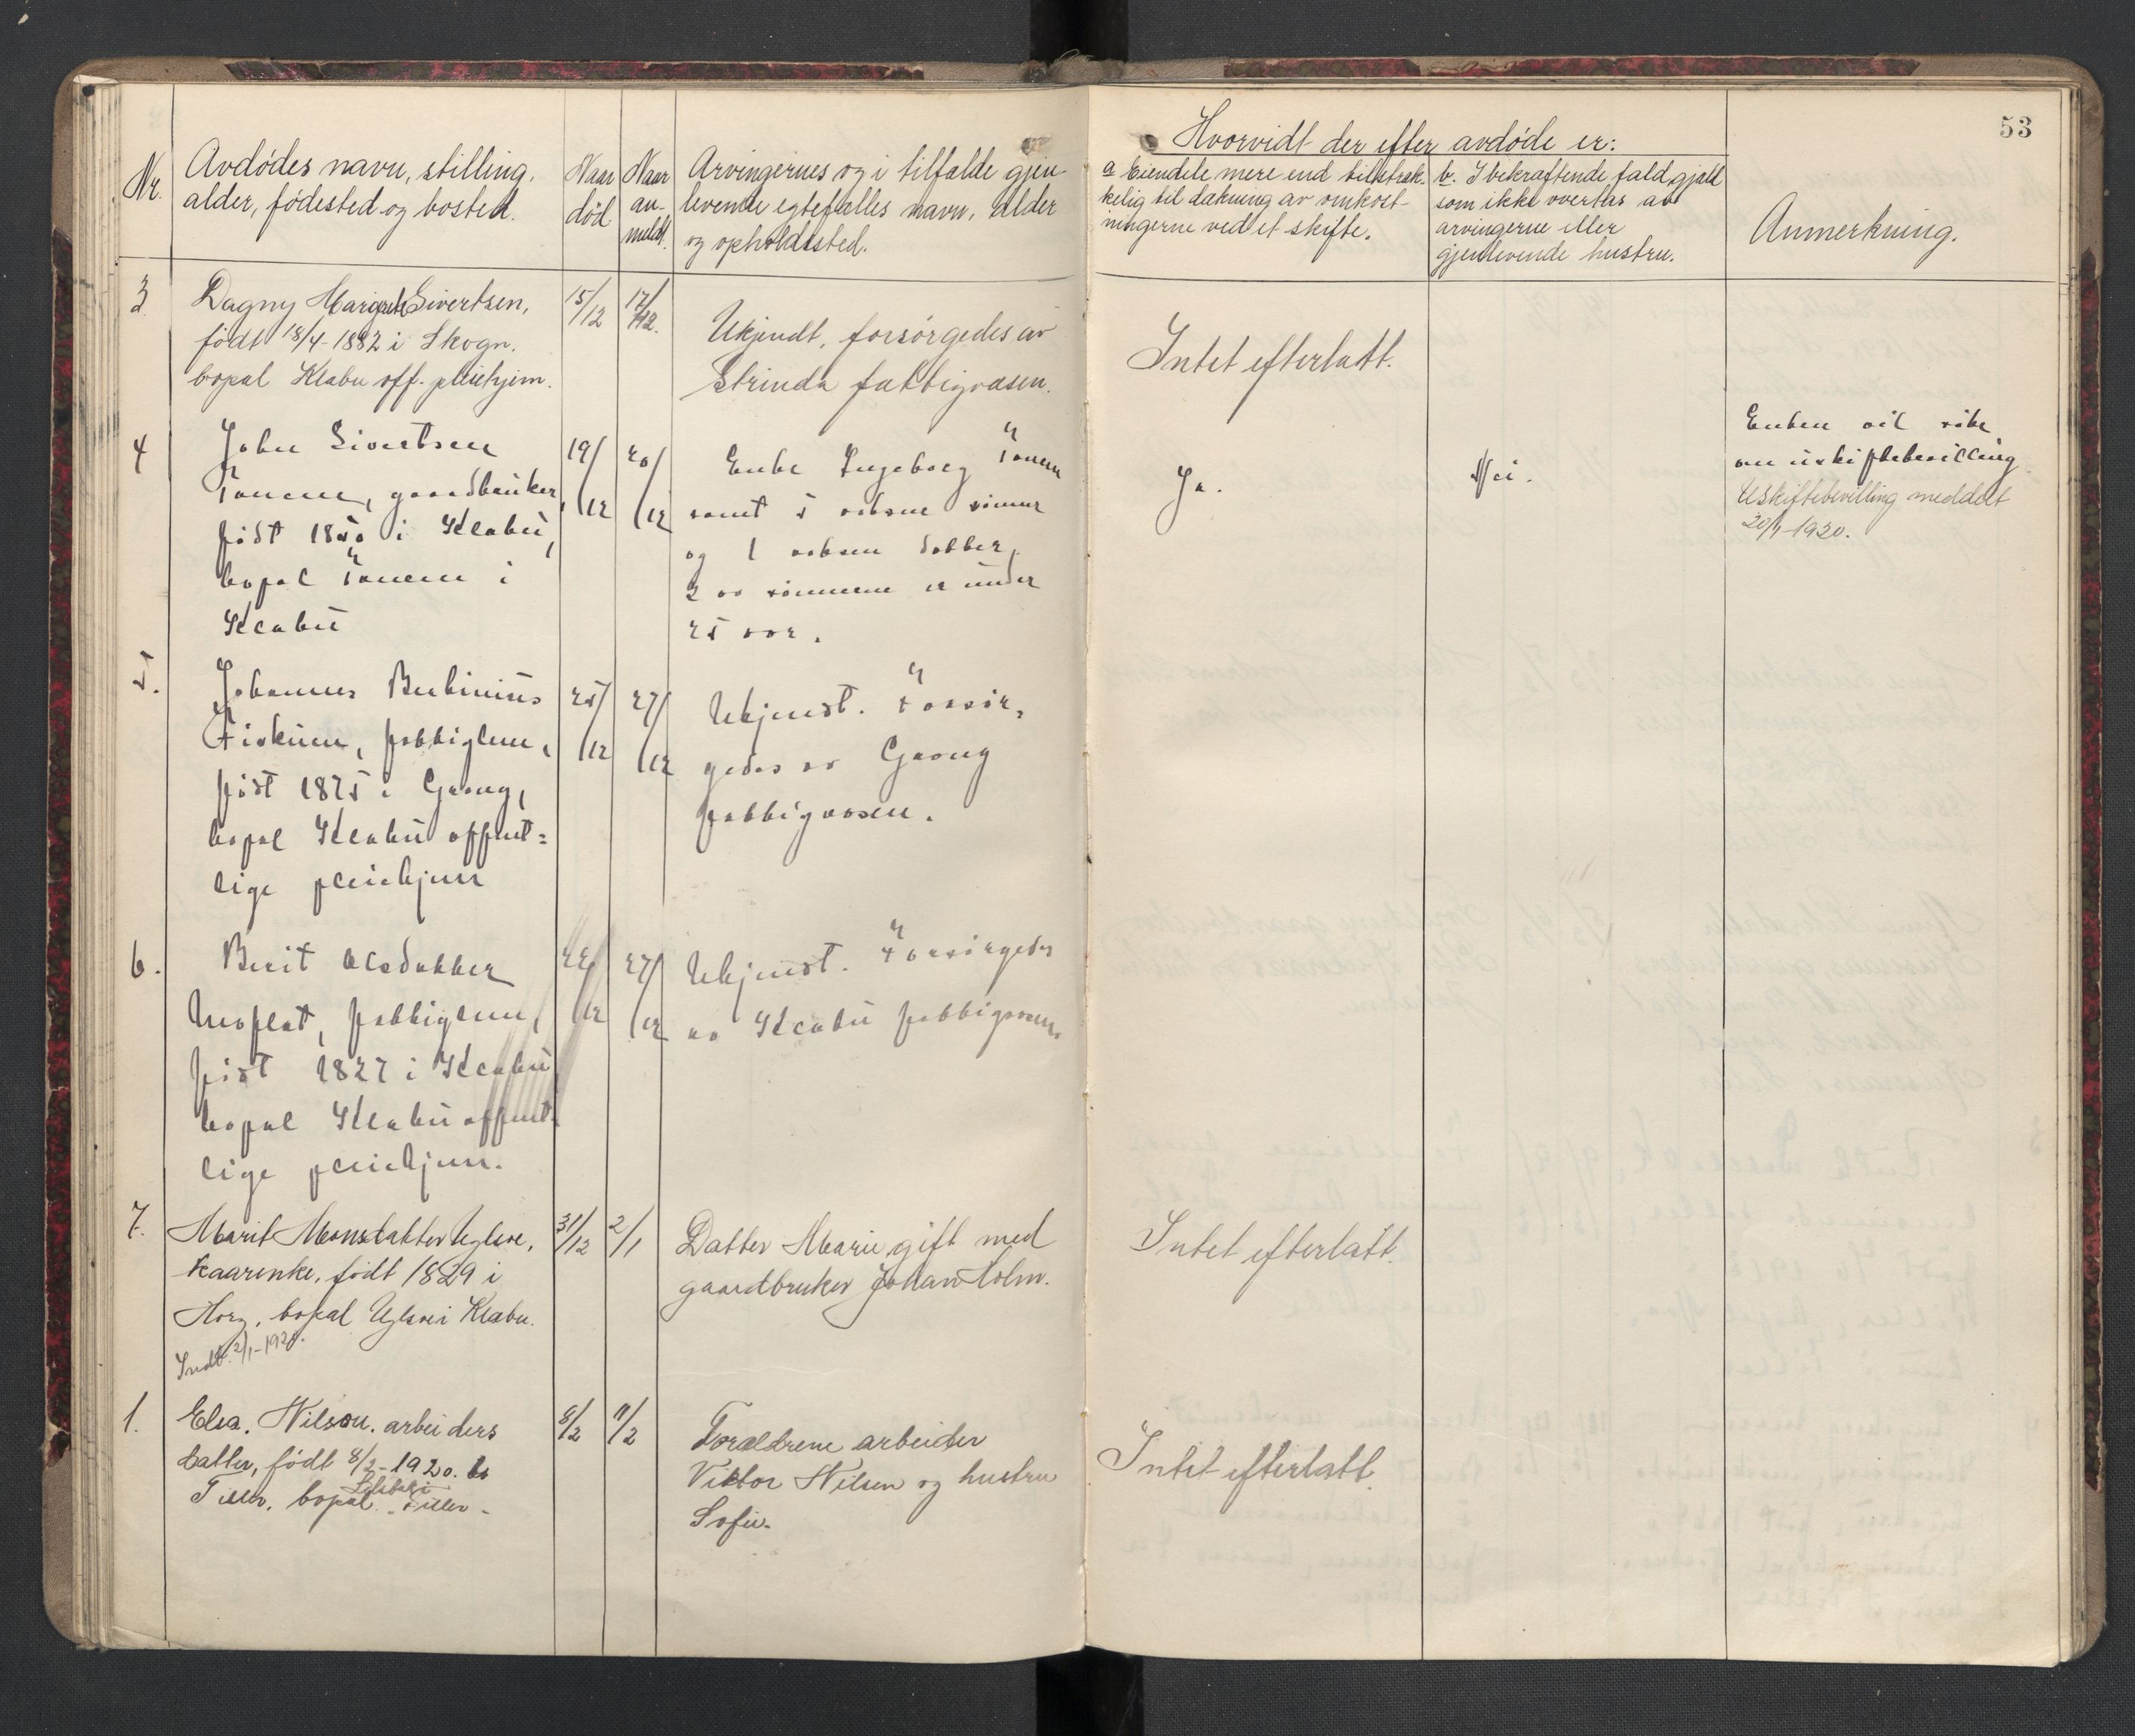 53
Hvorvidt der efter avdøde er:
Nr.
Avdødes navn, stilling,
alder, fødested og bosted.
Naar
død
Naar
an-
meldt.
Arvingernes og i tilfælde gjen-
levende egtefælles navn, alder
og opholdssted.
a. Eiendele mere end tilstræk-
kelig til dækning av omkost-
ningerne ved et skifte.
b. I bekræftende fald, gjæld
som ikke overtas av
arvingerne eller
gjenlevende hustru.
Anmerkning.
3
Dagny Margrete Sivertsen,
født 18/4-1882 i Skogn.
bopæl Klæbu off. pleiehjem.
15/12
17/12.
Ukjendt, forsørgedes av
Strinda fattigvæsen.
Intet efterlatt.
4
John Sivertsen
Tanem, gaardbruker,
født 1850 i Klæbu,
bopæl Tanem i
Klæbu
19/12
20/12
Enke Ingeborg Tanem
samt 5 voksne sønner
og 1 voksen datter,
2 av sønnerne er under
25 aar.
Ja.
Nei.
Enken vil søke
om uskiftebevilling
Uskiftebevilling meddelt
20/1-1920.
5.
Johannes Bertinius
Fiskum, fattiglem,
født 1875 i Grong,
bopæl Klæbu offent=
lige pleiehjem
25/12
27/12
Ukjendt. Forsør-
gedes av Grong
fattigvæsen.
6.
Berit Olsdatter
født 1827 i Klæbu
bopæl Klæbu offent-
lige pleiehjem.
22/12
27/12
Ukjendt. Forsørgedes
av Klæbu fattigvæsen
7.
Marit Monsdatter Uglem,
kaarenke, født 1829 i
Horg, bopæl Uglem i Klæbu.
Indb. 2/1-1920.
31/12
2/1
Datter Marie gift med
gaardbruker Johan Holm.
Intet efterlatt.
1.
Elsa Nilsen, arbeiders
datter, født 8/2-1920.
Tiller, bopæl Tiller.
8/2
11/2
Forældrene arbeider
Viktor Nilsen og hustru
Sofie.
Intet efterlatt.